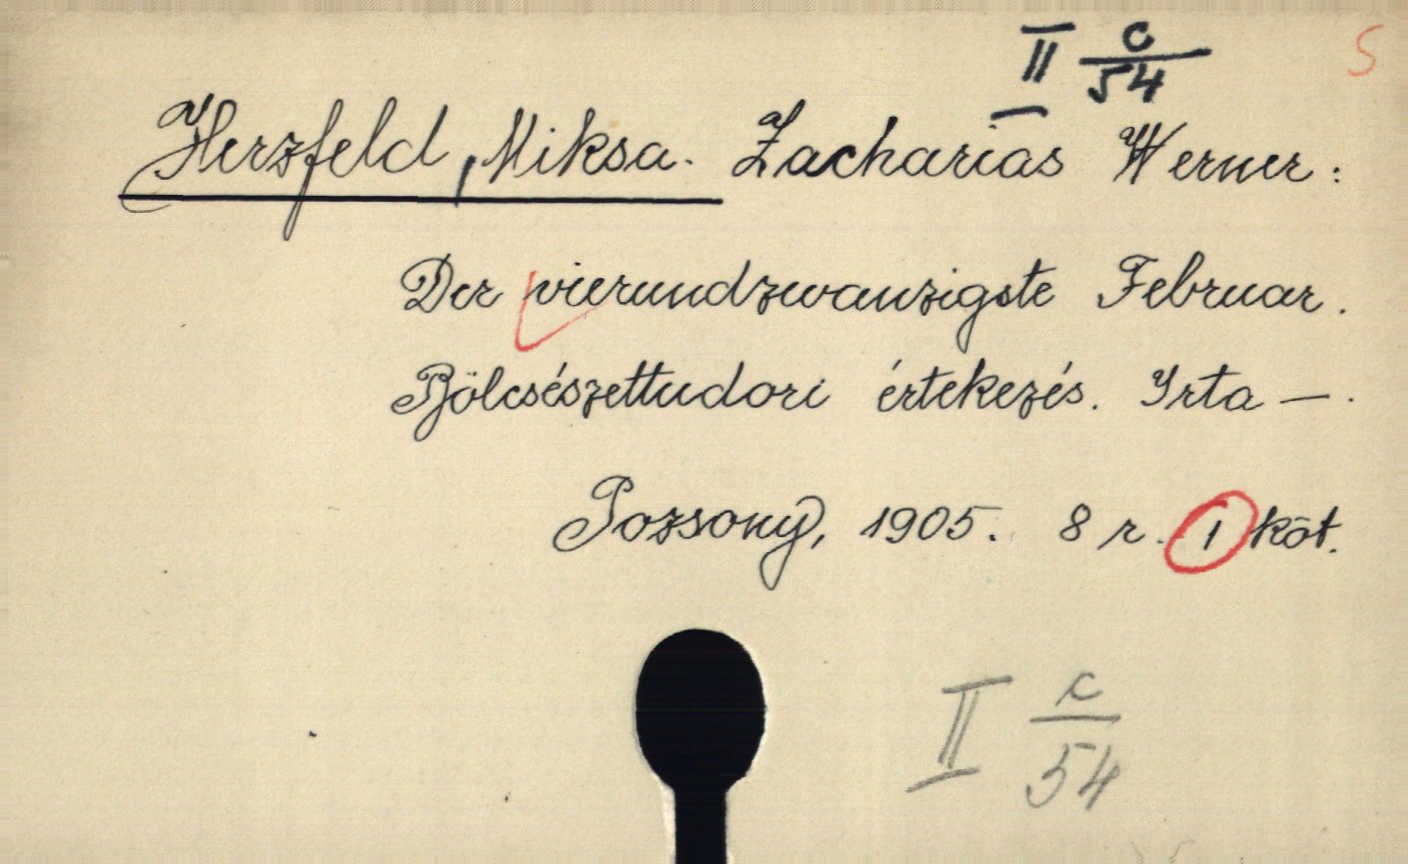 II c/54 S
Herzfeld, Miksa. Zacharias Werner:
Der vierundzwanzigste Februar.
Bölcsészettudori értekezés. Irta —.
Pozsony, 1905. 8 r. 1 köt.
II c/54